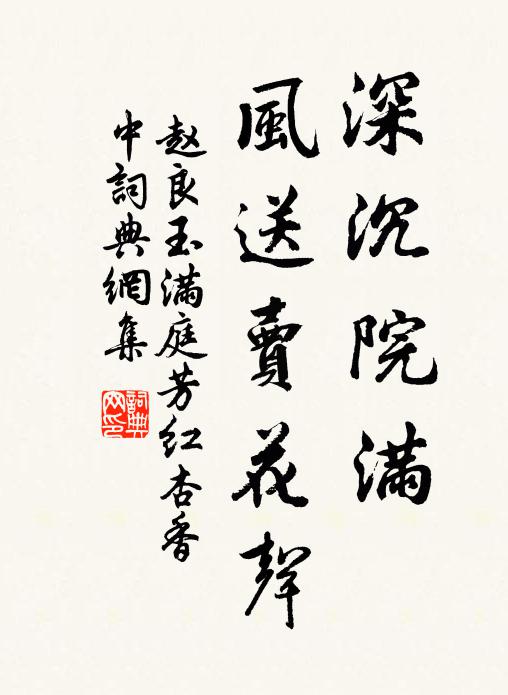 深沉院满
風送賣花聲
赵良玉满庭芳红杏香
中詞典網集
詞典网印